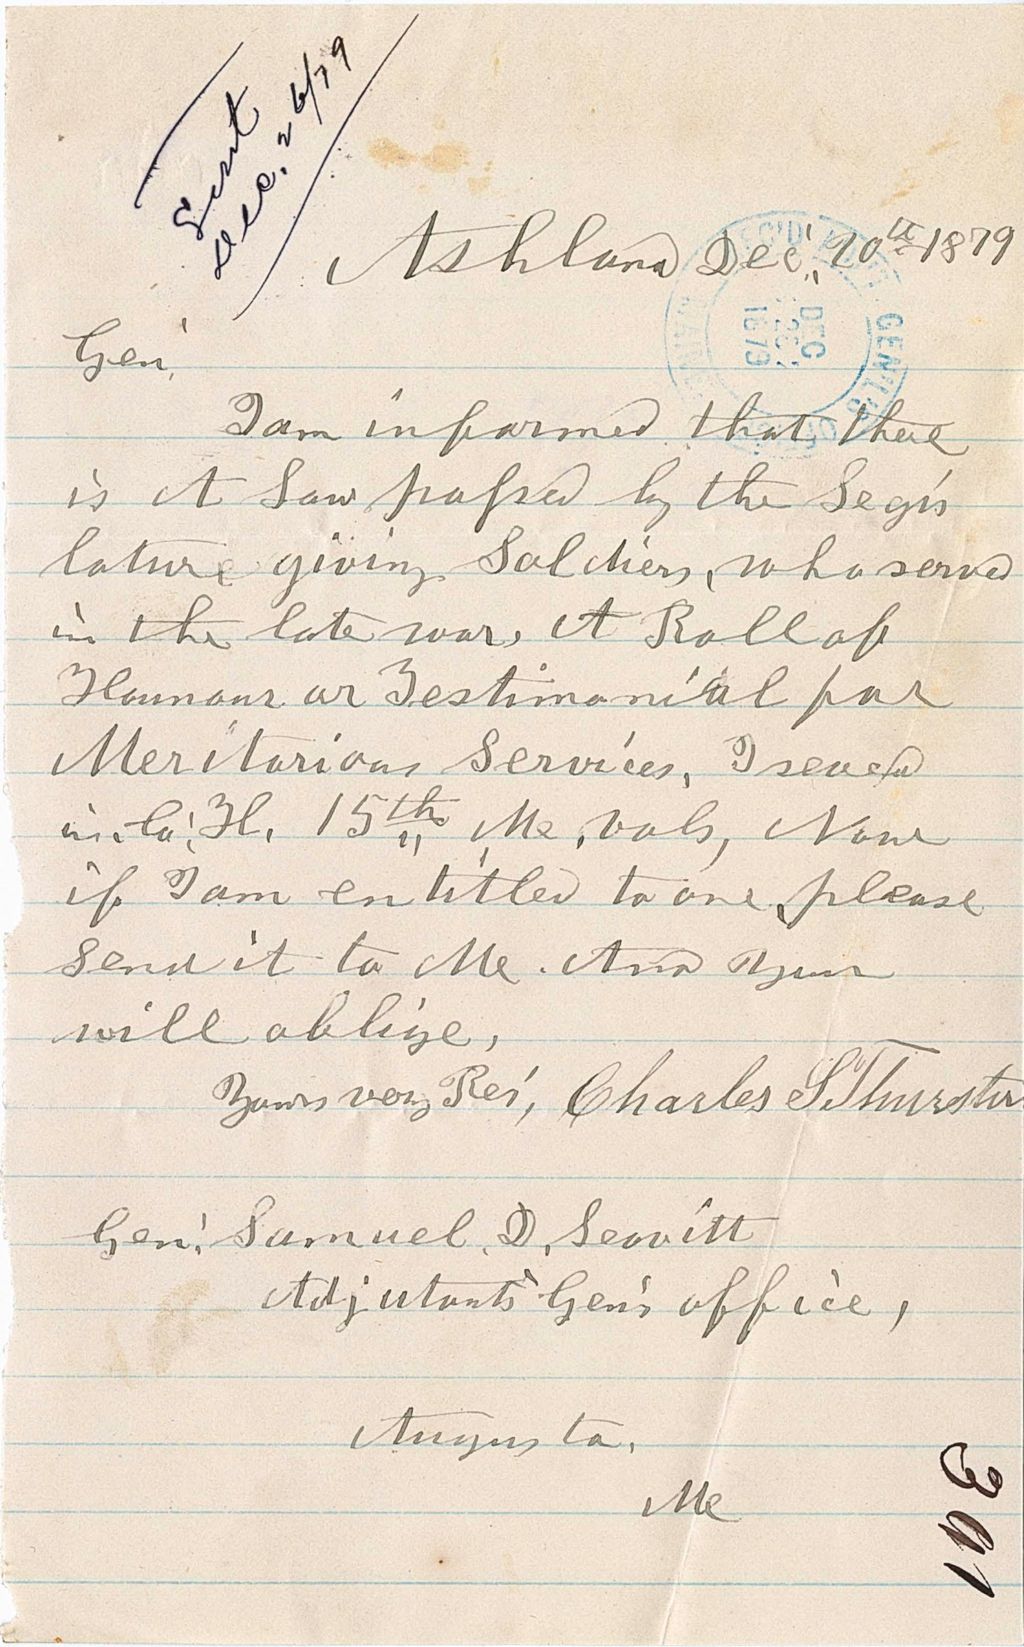 Sent
Dec. 26/79
Ashland Dec', 20th 1879
REC'D ADJT. GENL'S
DEC
26
1879
MAINE
Gen',
I am informed that there
is A Law passed by the Legis
lature giving Soldiers, who served
in the late war, A Roll of
Hounour or Testimonial for
Meritorious Services, I seved
in, Co', H, 15th Me, vols, Now
if I am entitled to one, please
send it to Me. And You
will oblige,
Yours very Res', Charles S. Thurston
Gen', Samuel, D, Leavitt
Adjutants Gen's office,
Augusta,
Me
391